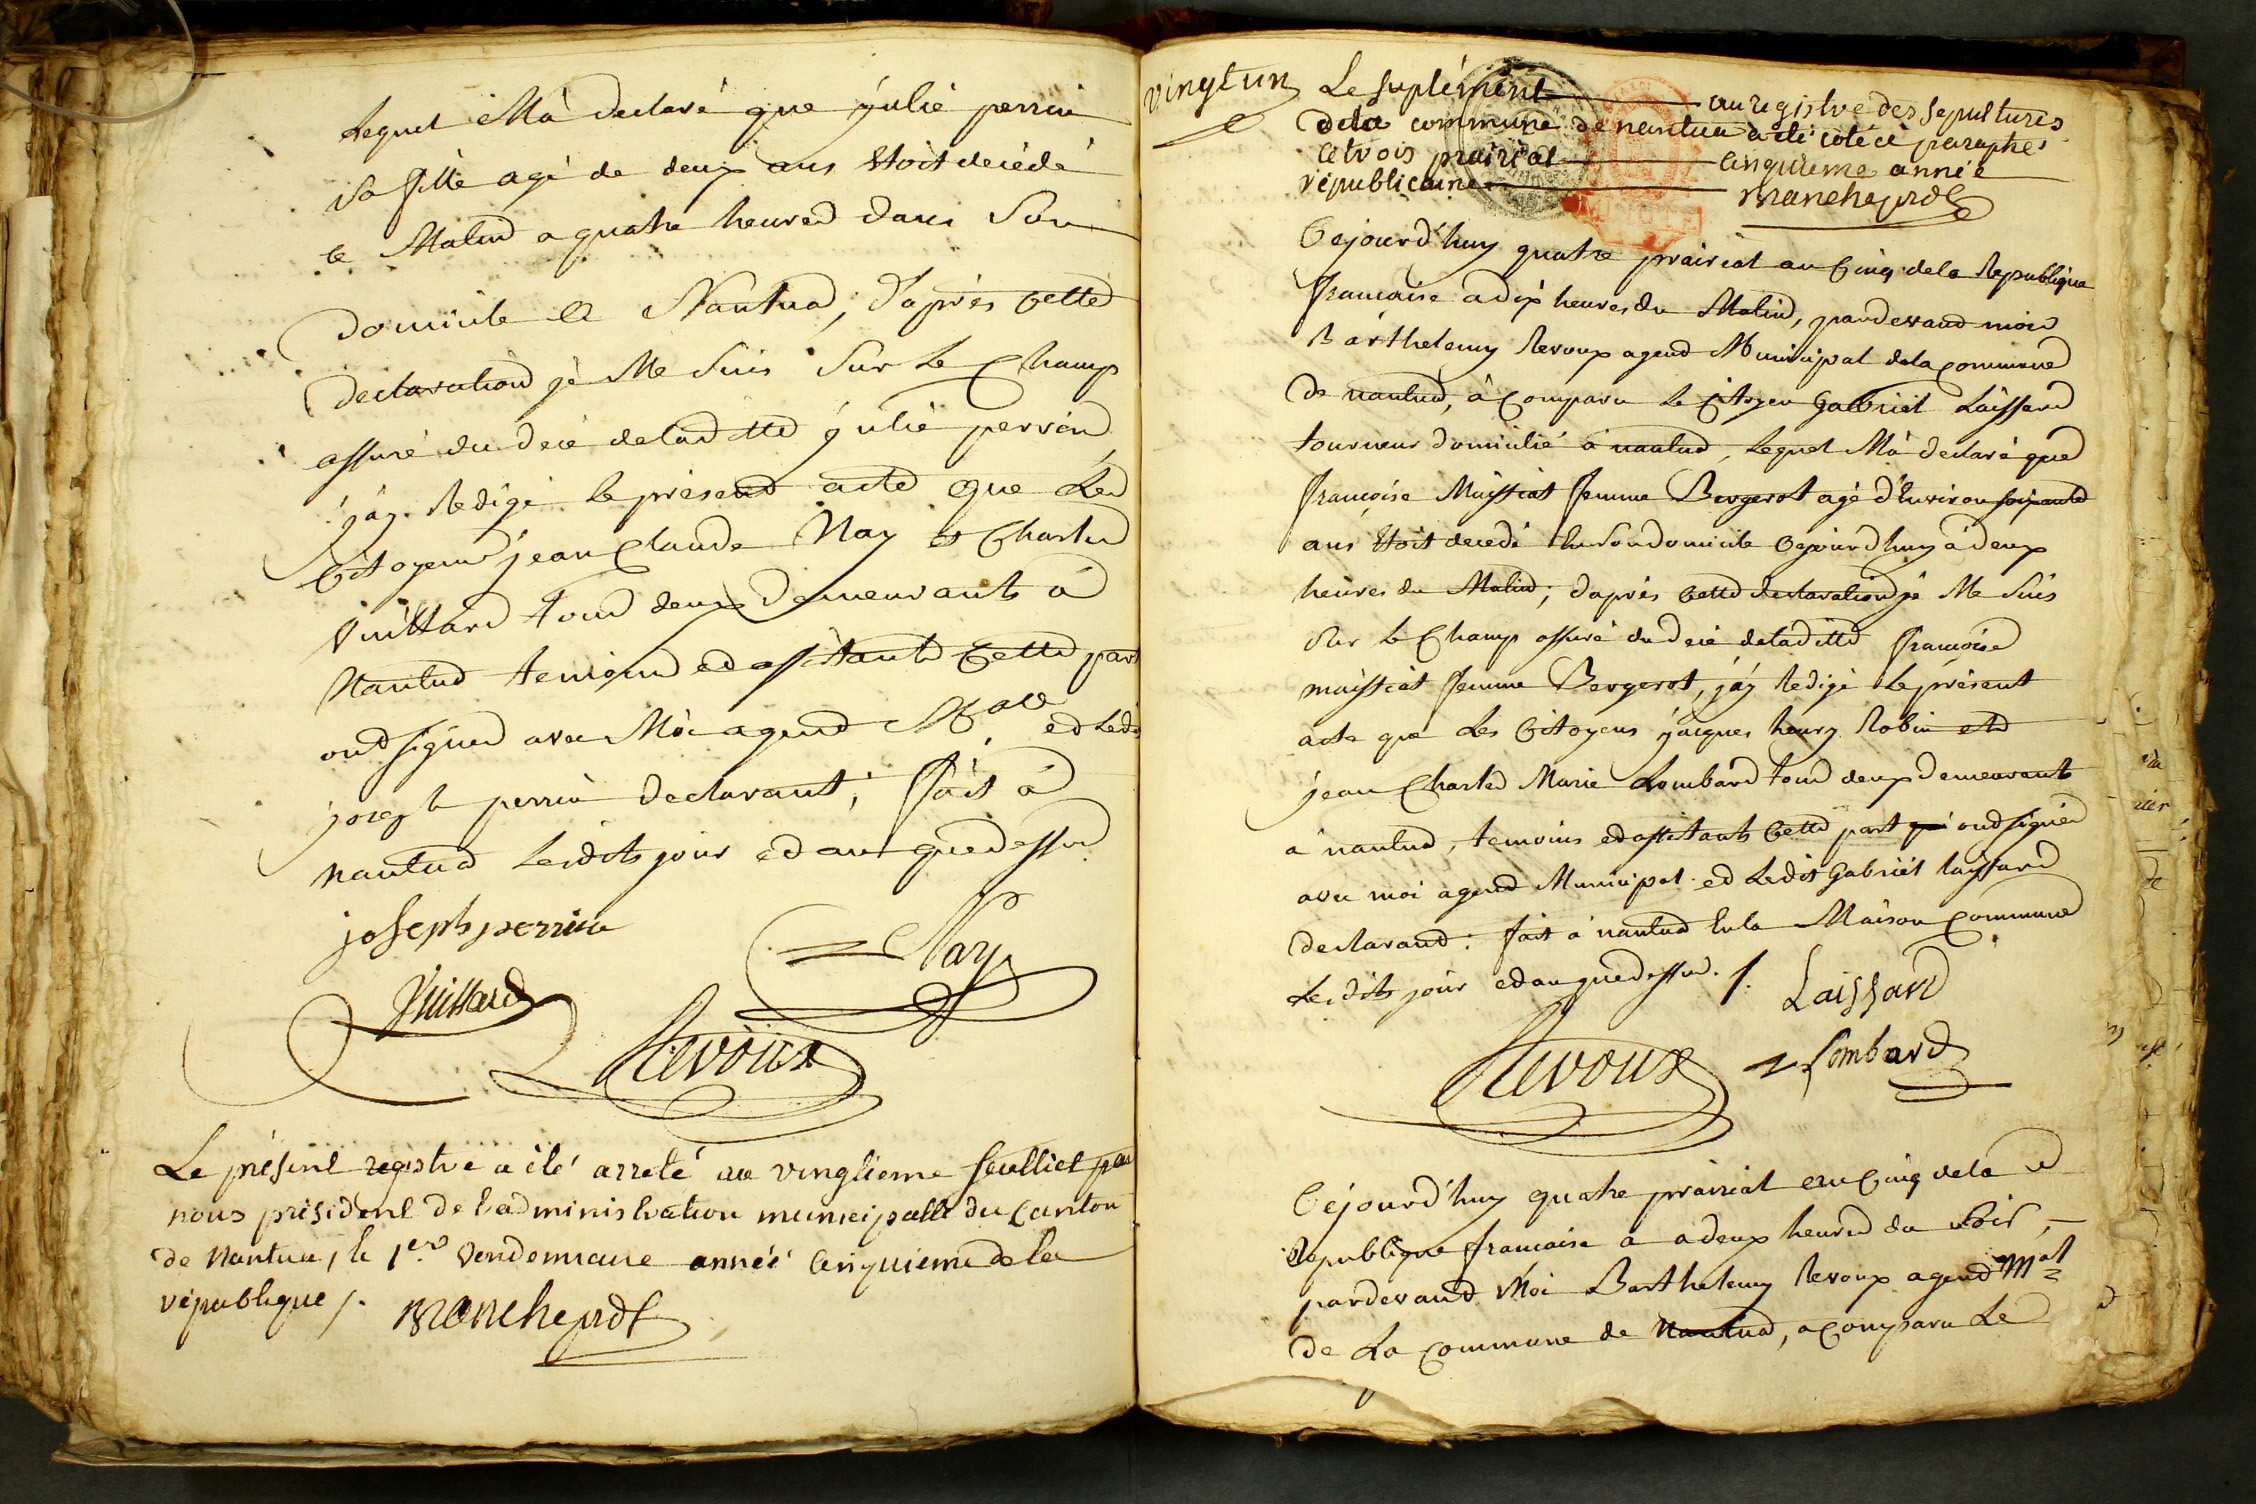 Lequel M'à declaré que julié perrin
sa fille agé de deux ans Etoit decédé
le Matin a quatre heures dans Son
domicile a Nantua, D'après Cette
declaration jé Me Suis Sur Le Champ
assuré du decé deladitte julié perrin
j'ay Redigé le présent acte que Les
Citoyens jean Claude Nay et Charles
Vuillard tous deux Demeurants à
Nantua temoins et assitants Cette part
ont signés avec Moi agent M.al et Ledit
joseph perrin declarant; Fait à
nantua Lesdits jour et an que dessus
joseph perrin
Nay
Vuillard
Revoux
Le présent registre a été arreté au vingtieme feulliet par
nous président de l'administration municipalle du Canton
de Nantua, le 1er Vendemiaire année Cinquieme de la
république /. Manche prdt
vingt un Le suplément au registre des sepultures
de la commune de nantua a été coté et paraphé
ce trois prairial cinquieme année
républicaine Manche prdt
Cejourd'huy quatre prairial an Cinq dela Republique
francaise a dix heures du Matin, pardevant moi
Barthelemy Revoux agent Municipal dela Commune
de nantua, à Comparu Le Citoyen Gabriel Laissard
tourneur domicilié à nantua, Lequel M'à declaré que
françoise Maissiat femme Bergerot agé d'Environ soixante
ans Etoit decedé En Son domicile Cejourd'huy à deux
heures du Matin; d'après Cette declaration jé Me Suis
Sur Le Champ assuré du decé deladitte françoise
maissiat femme Bergerot, j'ay Redigé Le présent
acte que Les Citoyens jacques henry Robin et
jean Charles Marie Lombard tous deux demeurants
à nantua, temoins et assitants Cette part qui ont signés
avec moi agent Municipal et Ledit Gabriel laissard
declarant: fait à nantua En la Maison Commune
Lesdits jour et an que dessus. /.
Laissard
Revoux
Lombard
Cejourd'huy quatre prairial an Cinq dela
Republique francaise a a deux heures du soir,
pardevant Moi Barthelemy Revoux agent M.al
de La Commune de Nantua, a Comparu Le